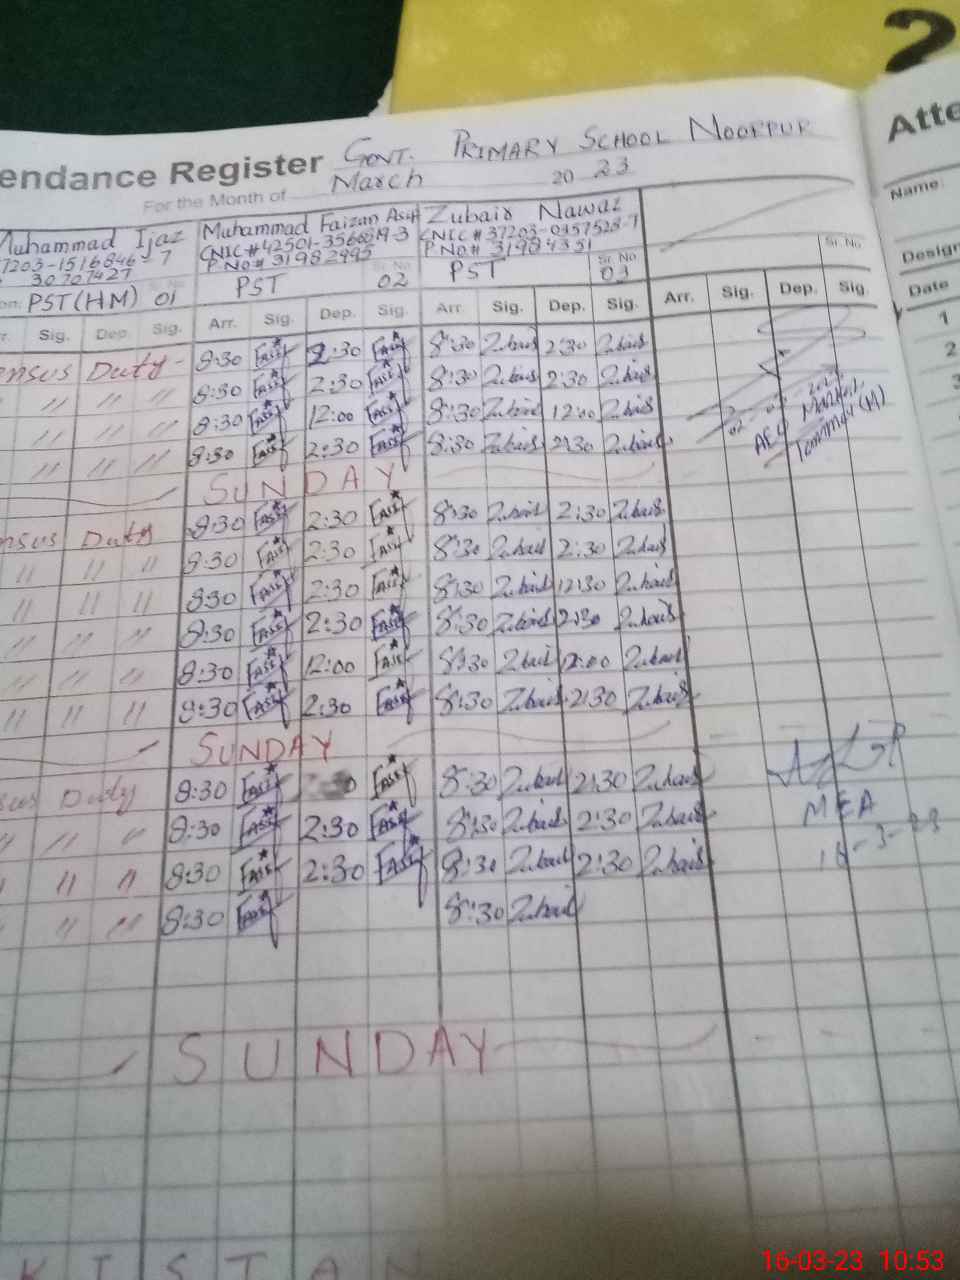 2
endance Register GOVT. PRIMARY SCHOOL NOORPUR
For the Month of March 20 23
Muhammad Ijaz Muhammad Faizan Asif Zubair Nawaz
7203-1516846-7 CNIC # 42501-3566819-3 CNIC # 37203-0357528-7
30707427 P.No# 31982995 P.No# 31984351
PST (HM) 01 PST Sr. No 02 PST Sr. No 03 Sr. No
r. Sig. Dep. Sig. Arr. Sig. Dep. Sig. Arr Sig. Dep. Sig. Arr. Sig. Dep. Sig.
ensus Duty 8:30 Asif 2:30 Asif 8:30 Zubair 2:30 Zubair
" " " 8:30 Asif 2:30 Asif 8:30 Zubair 2:30 Zubair
" " " 8:30 Asif 12:00 Asif 8:30 Zubair 12:00 Zubair
" " " 8:30 Asif 2:30 Asif 8:30 Zubair 2:30 Zubair
AEO
SUNDAY
nsus Duty 8:30 Asif 2:30 Asif 8:30 Zubair 2:30 Zubair
" " " 8:30 Asif 2:30 Asif 8:30 Zubair 2:30 Zubair
" " " 8:30 Asif 2:30 Asif 8:30 Zubair 12:30 Zubair
" " " 8:30 Asif 2:30 Asif 8:30 Zubair 2:30 Zubair
" " " 8:30 Asif 12:00 Asif 8:30 Zubair 12:00 Zubair
" " " 8:30 Asif 2:30 Asif 8:30 Zubair 2:30 Zubair
SUNDAY
sus Duty 8:30 Asif Asif 8:30 Zubair 2:30 Zubair
" " 8:30 Asif 2:30 Asif 8:30 Zubair 2:30 Zubair
" " 8:30 Asif 2:30 Asif 8:30 Zubair 2:30 Zubair
" " 8:30 Asif 8:30 Zubair
MEA
SUNDAY
KISTAN
Atte
Name:
Design
Date
1
2
3
16-03-23 10:53